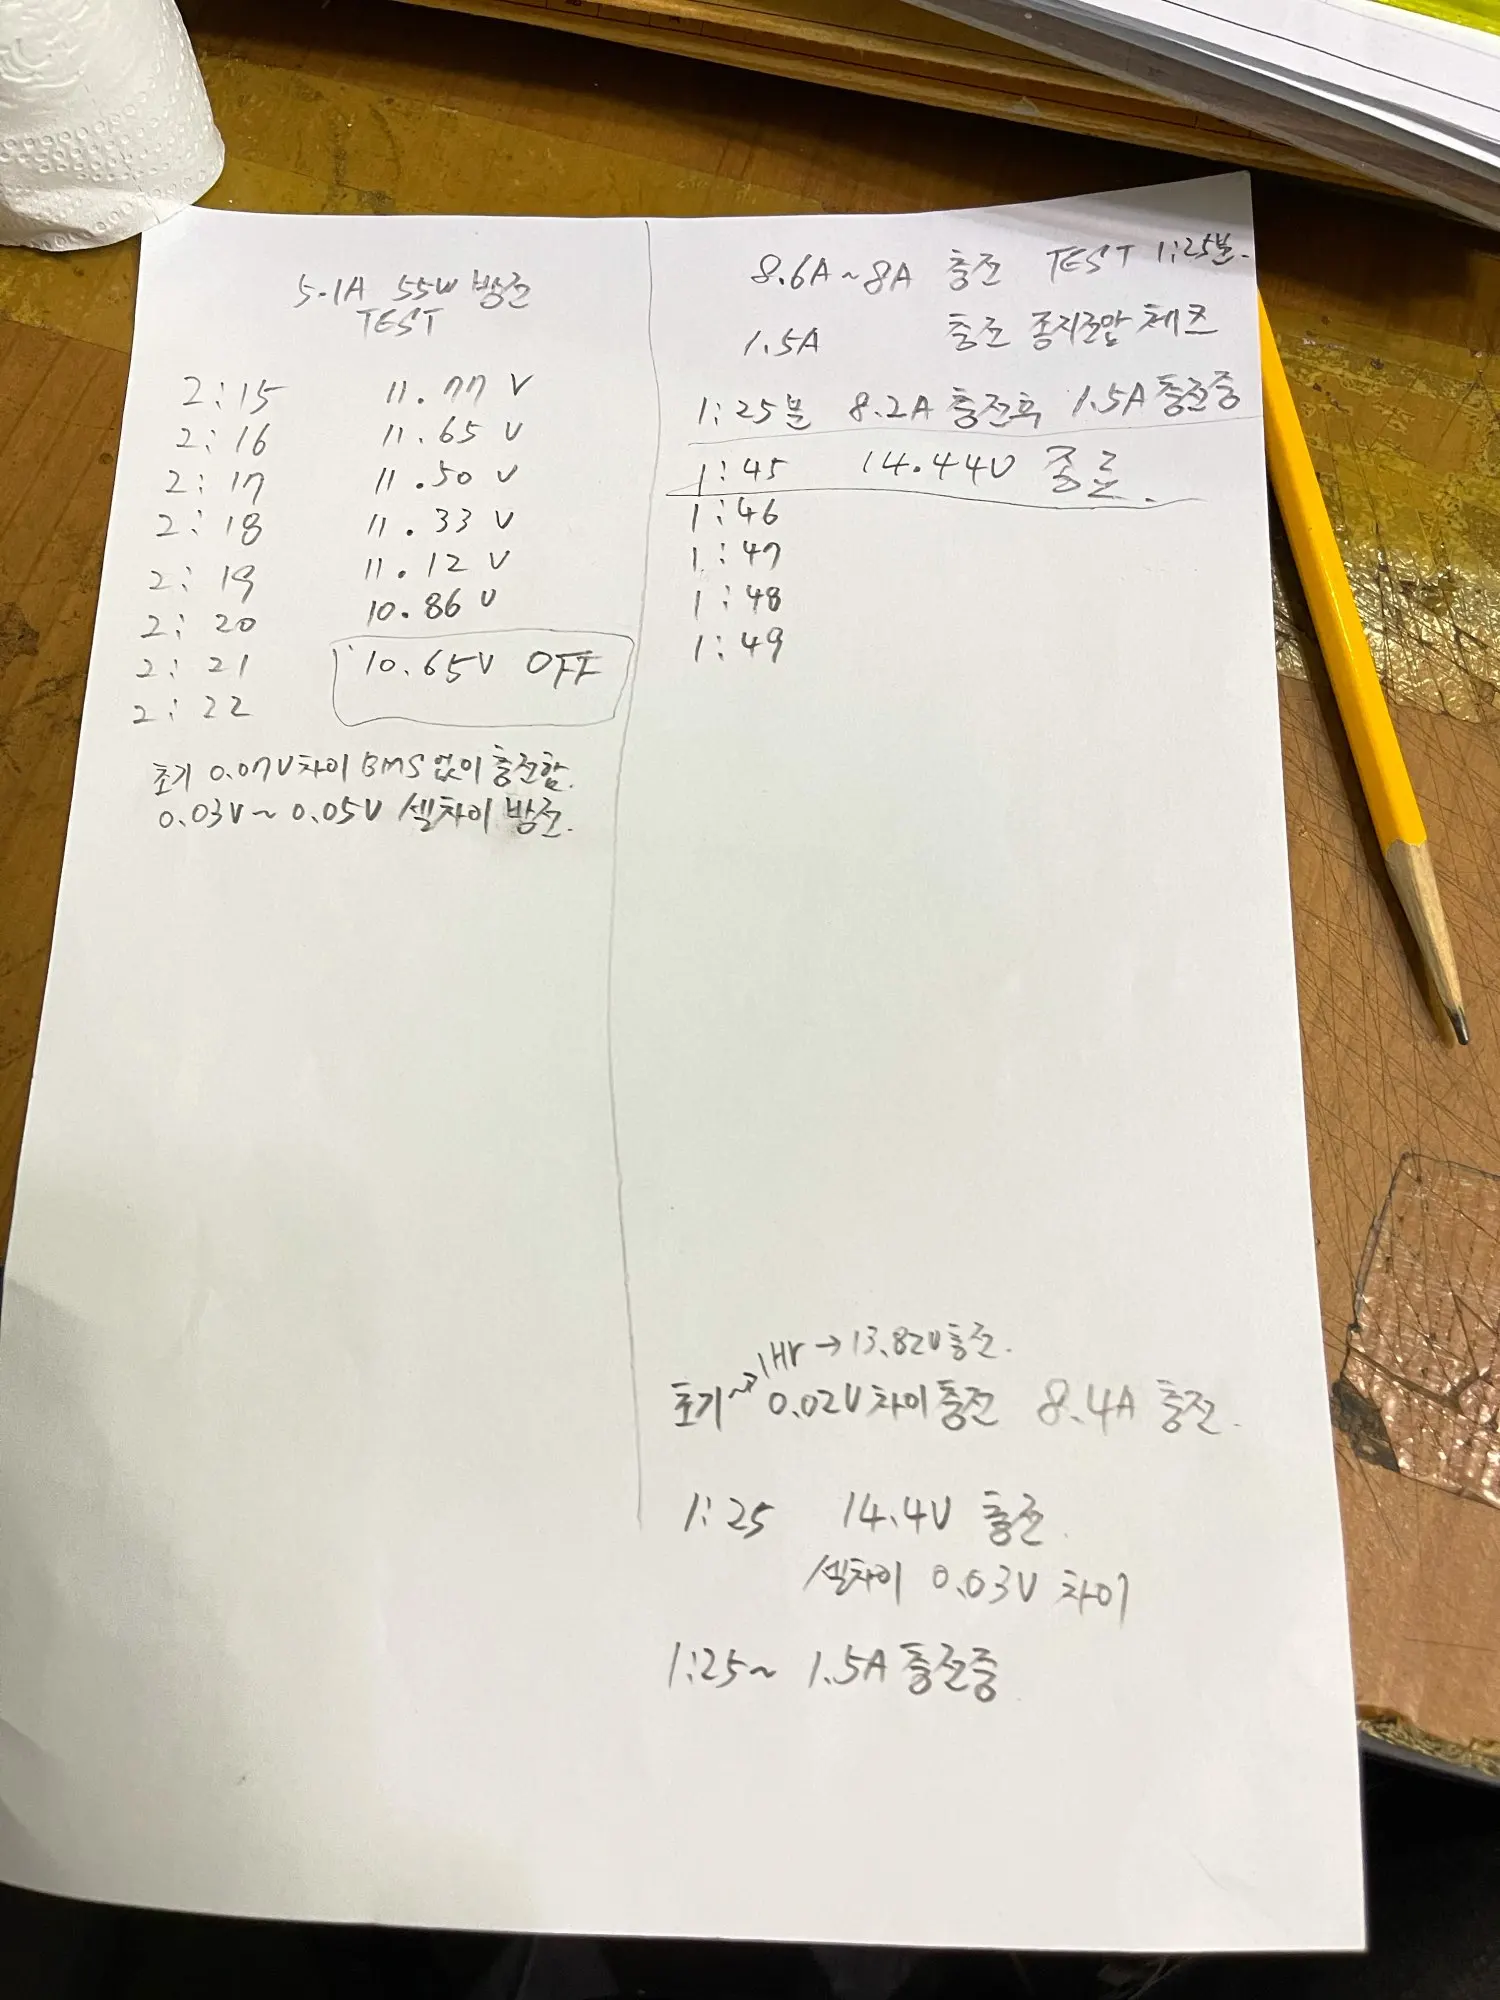 5.1A 55W 방전
TEST
2:15 11.77 V
2:16 11.65 V
2:17 11.50 V
2:18 11.33 V
2:19 11.12 V
2:20 10.86 V
2:21 10.65V OFF
2:22
초기 0.07V차이 BMS없이 충전함.
0.03V~0.05V 셀차이 방전.
8.6A~8A 충전 TEST 1:25분.
1.5A 충전 종지전압 체크
1:25분 8.2A 충전후 1.5A충전중
1:45 14.44V 종료.
1:46
1:47
1:48
1:49
1Hr → 13.82V충전.
초기~→ 0.02V차이충전 8.4A 충전.
1:25 14.4V 충전.
셀차이 0.03V 차이
1:25~ 1.5A 충전중